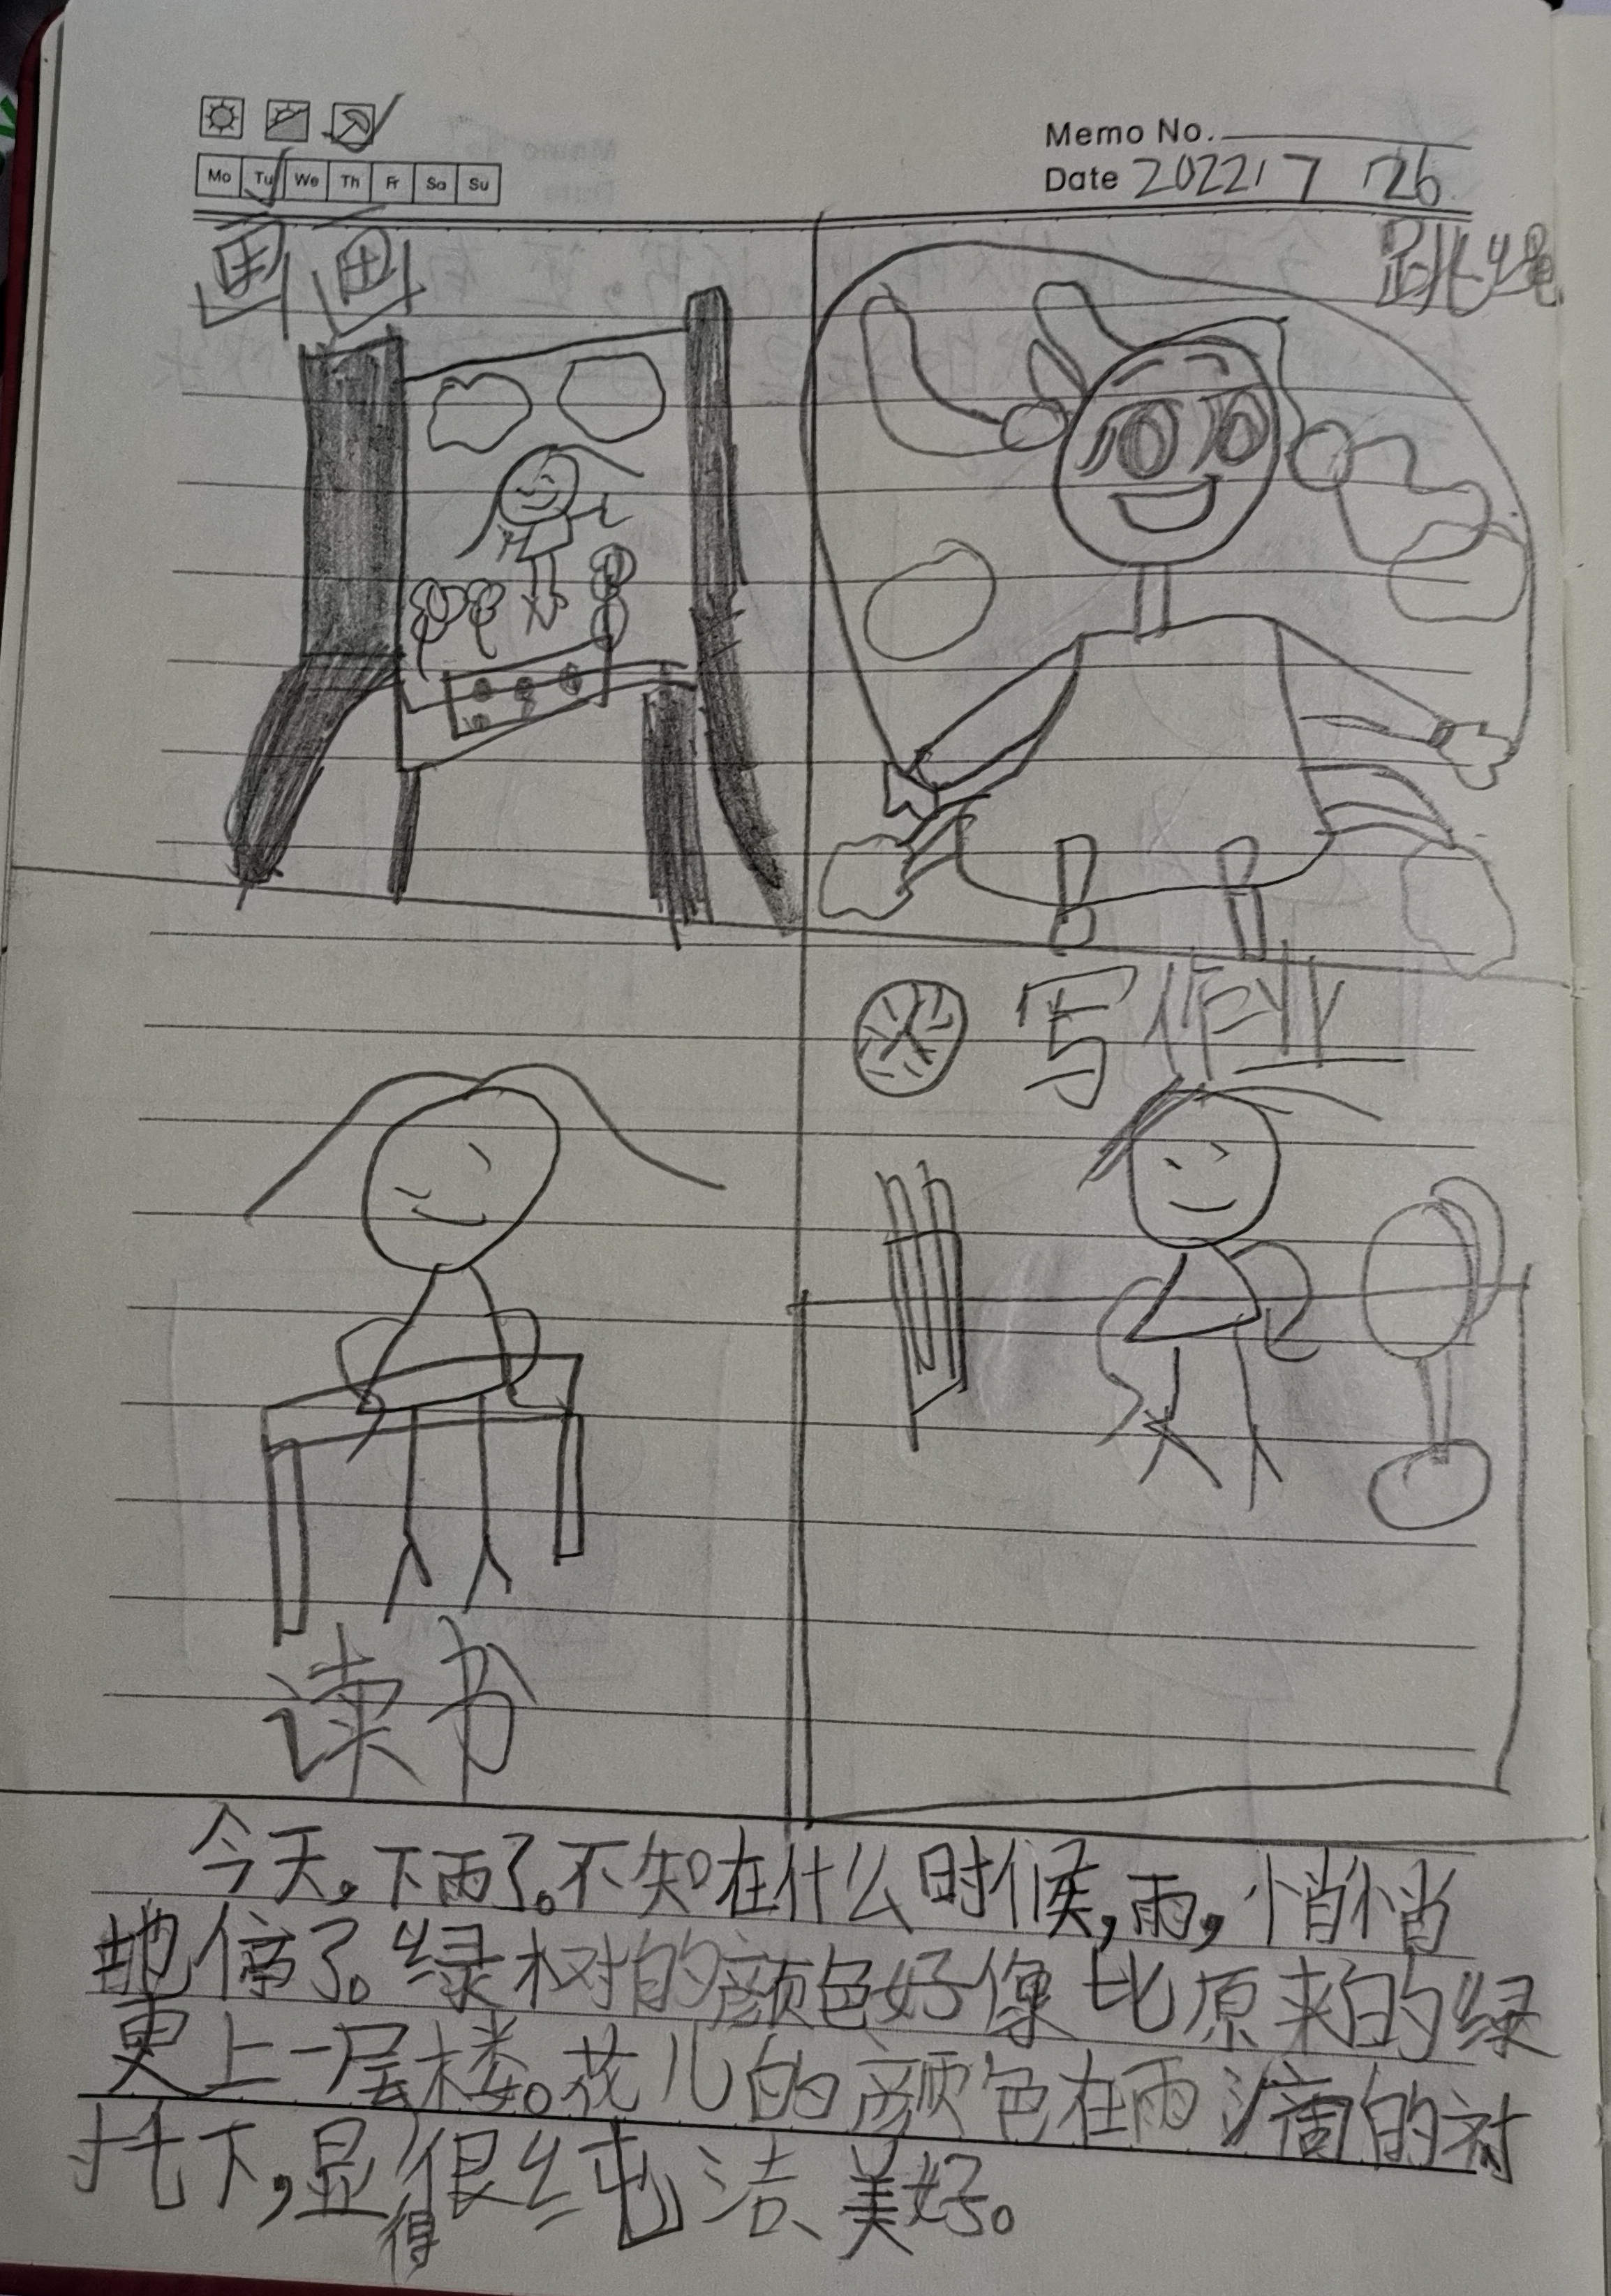 Memo No.
Mo Tu We Th Fr Sa Su
Date 2022 7 26
画画
跳绳
写作业
读书
今天，下雨了。不知在什么时候，雨，悄悄
地停了。绿树的颜色好像比原来的绿
更上一层楼。花儿的颜色在雨滴的衬
托下，显得很纯洁、美好。